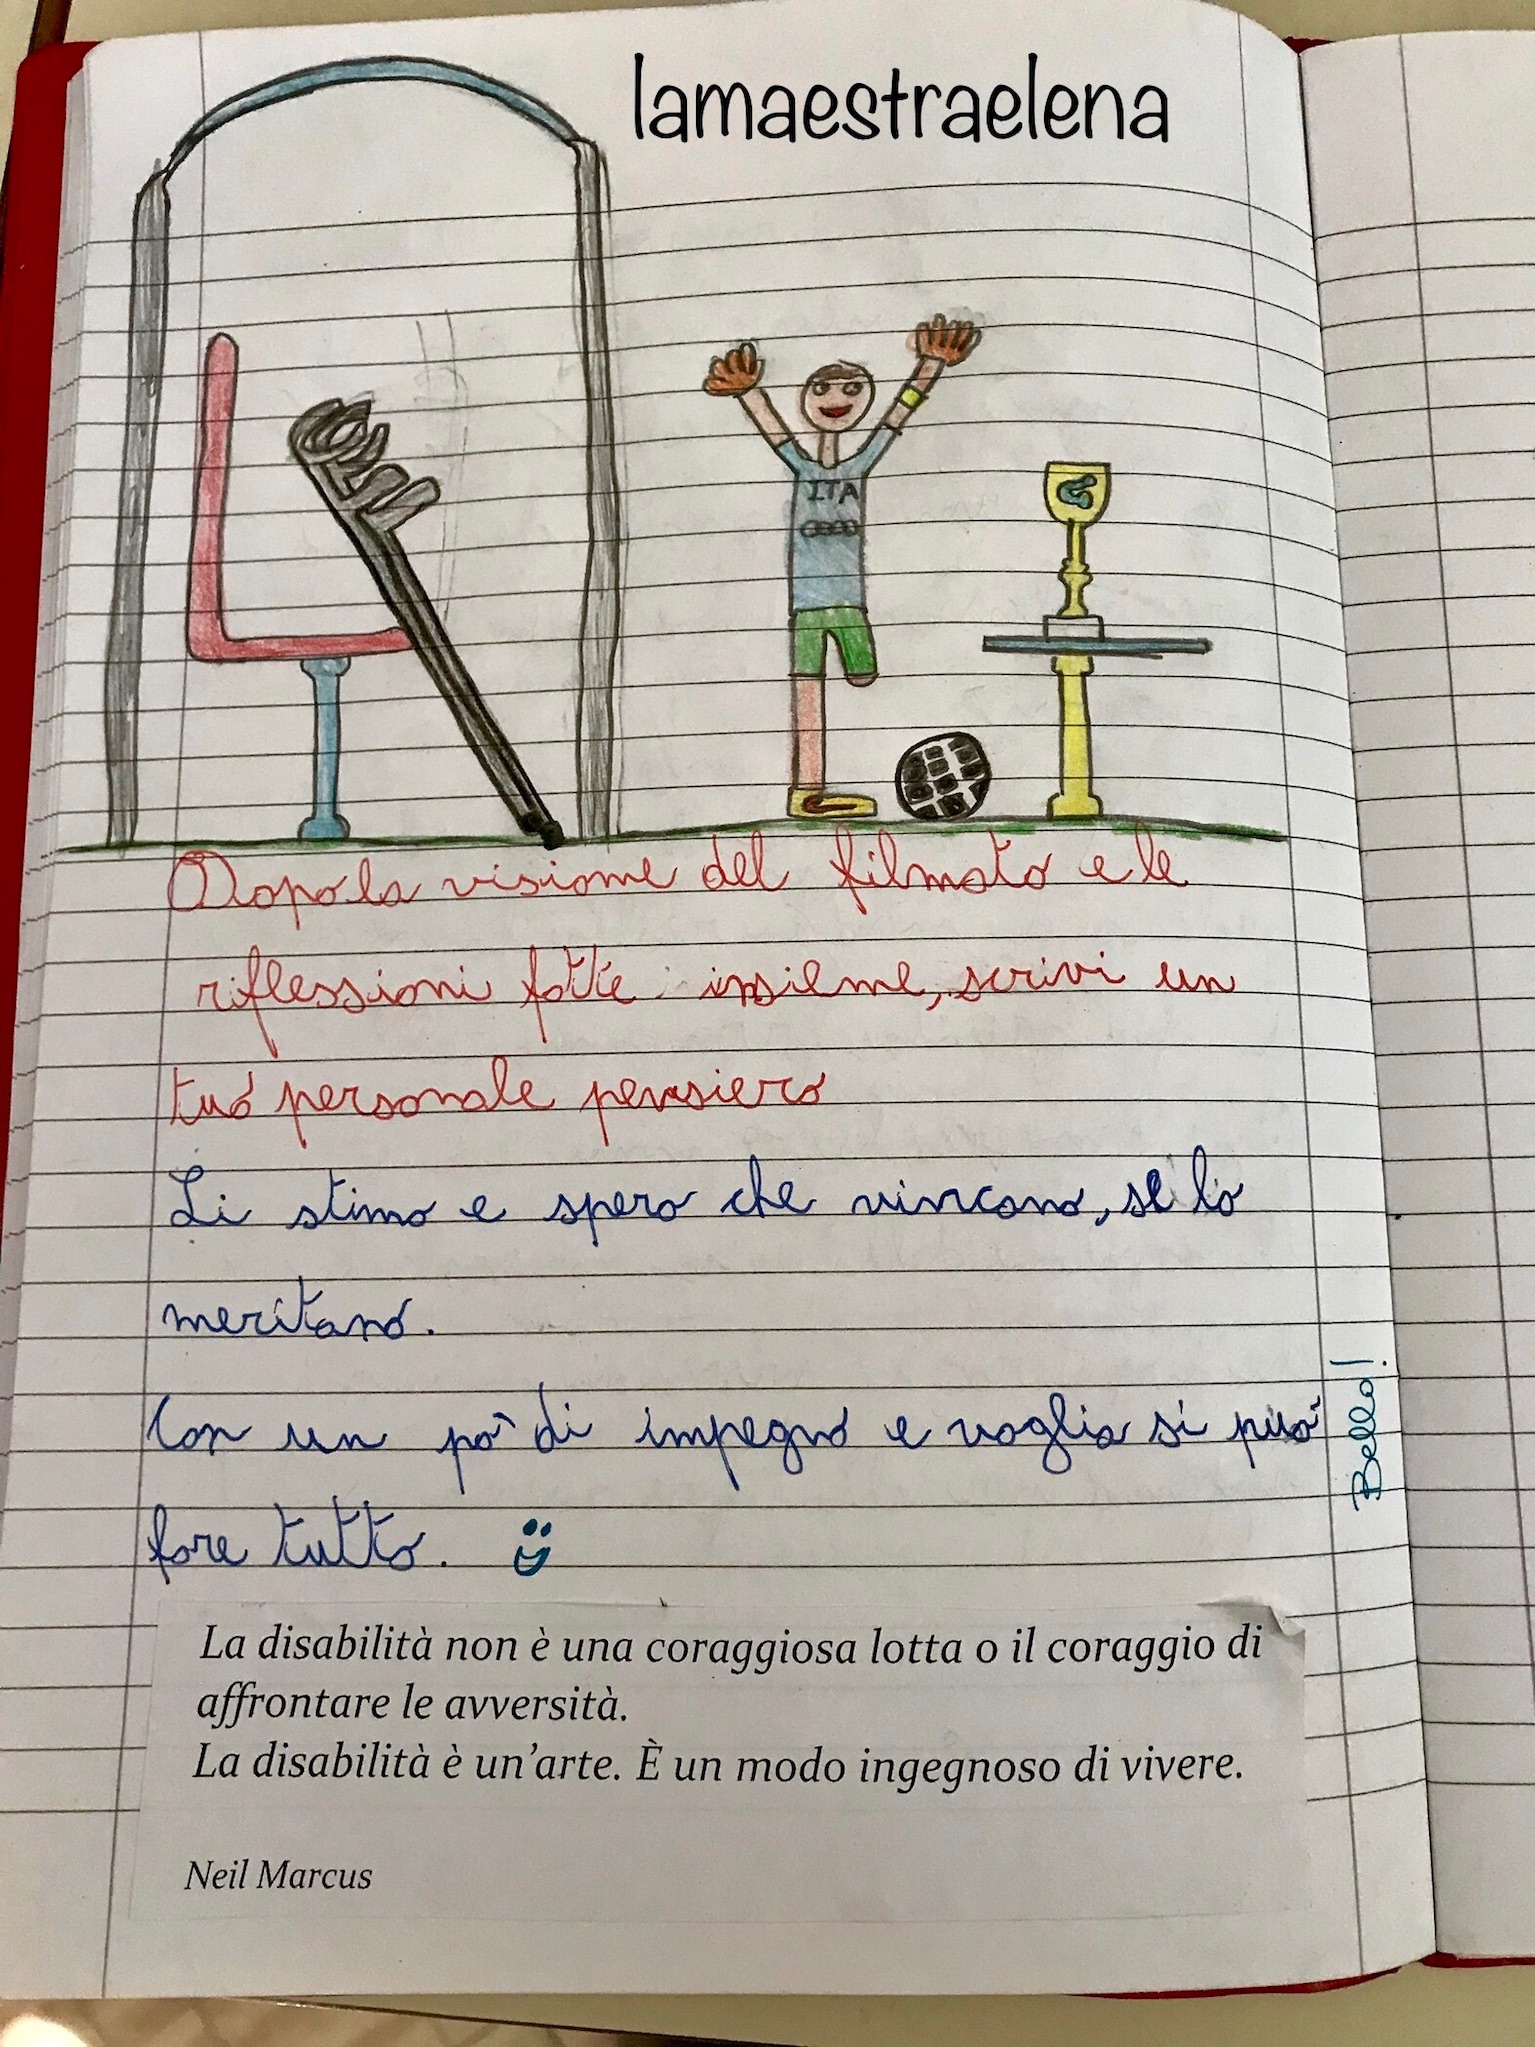 lamaestraelena
ITA
Dopo la visione del filmato e le
riflessioni fatte insieme, scrivi un
tuo personale pensiero
Li stimo e spero che vincano, se lo
meritano.
Con un po' di impegno e voglia si può
fare tutto.
Bello!
La disabilità non è una coraggiosa lotta o il coraggio di
affrontare le avversità.
La disabilità è un'arte. È un modo ingegnoso di vivere.
Neil Marcus